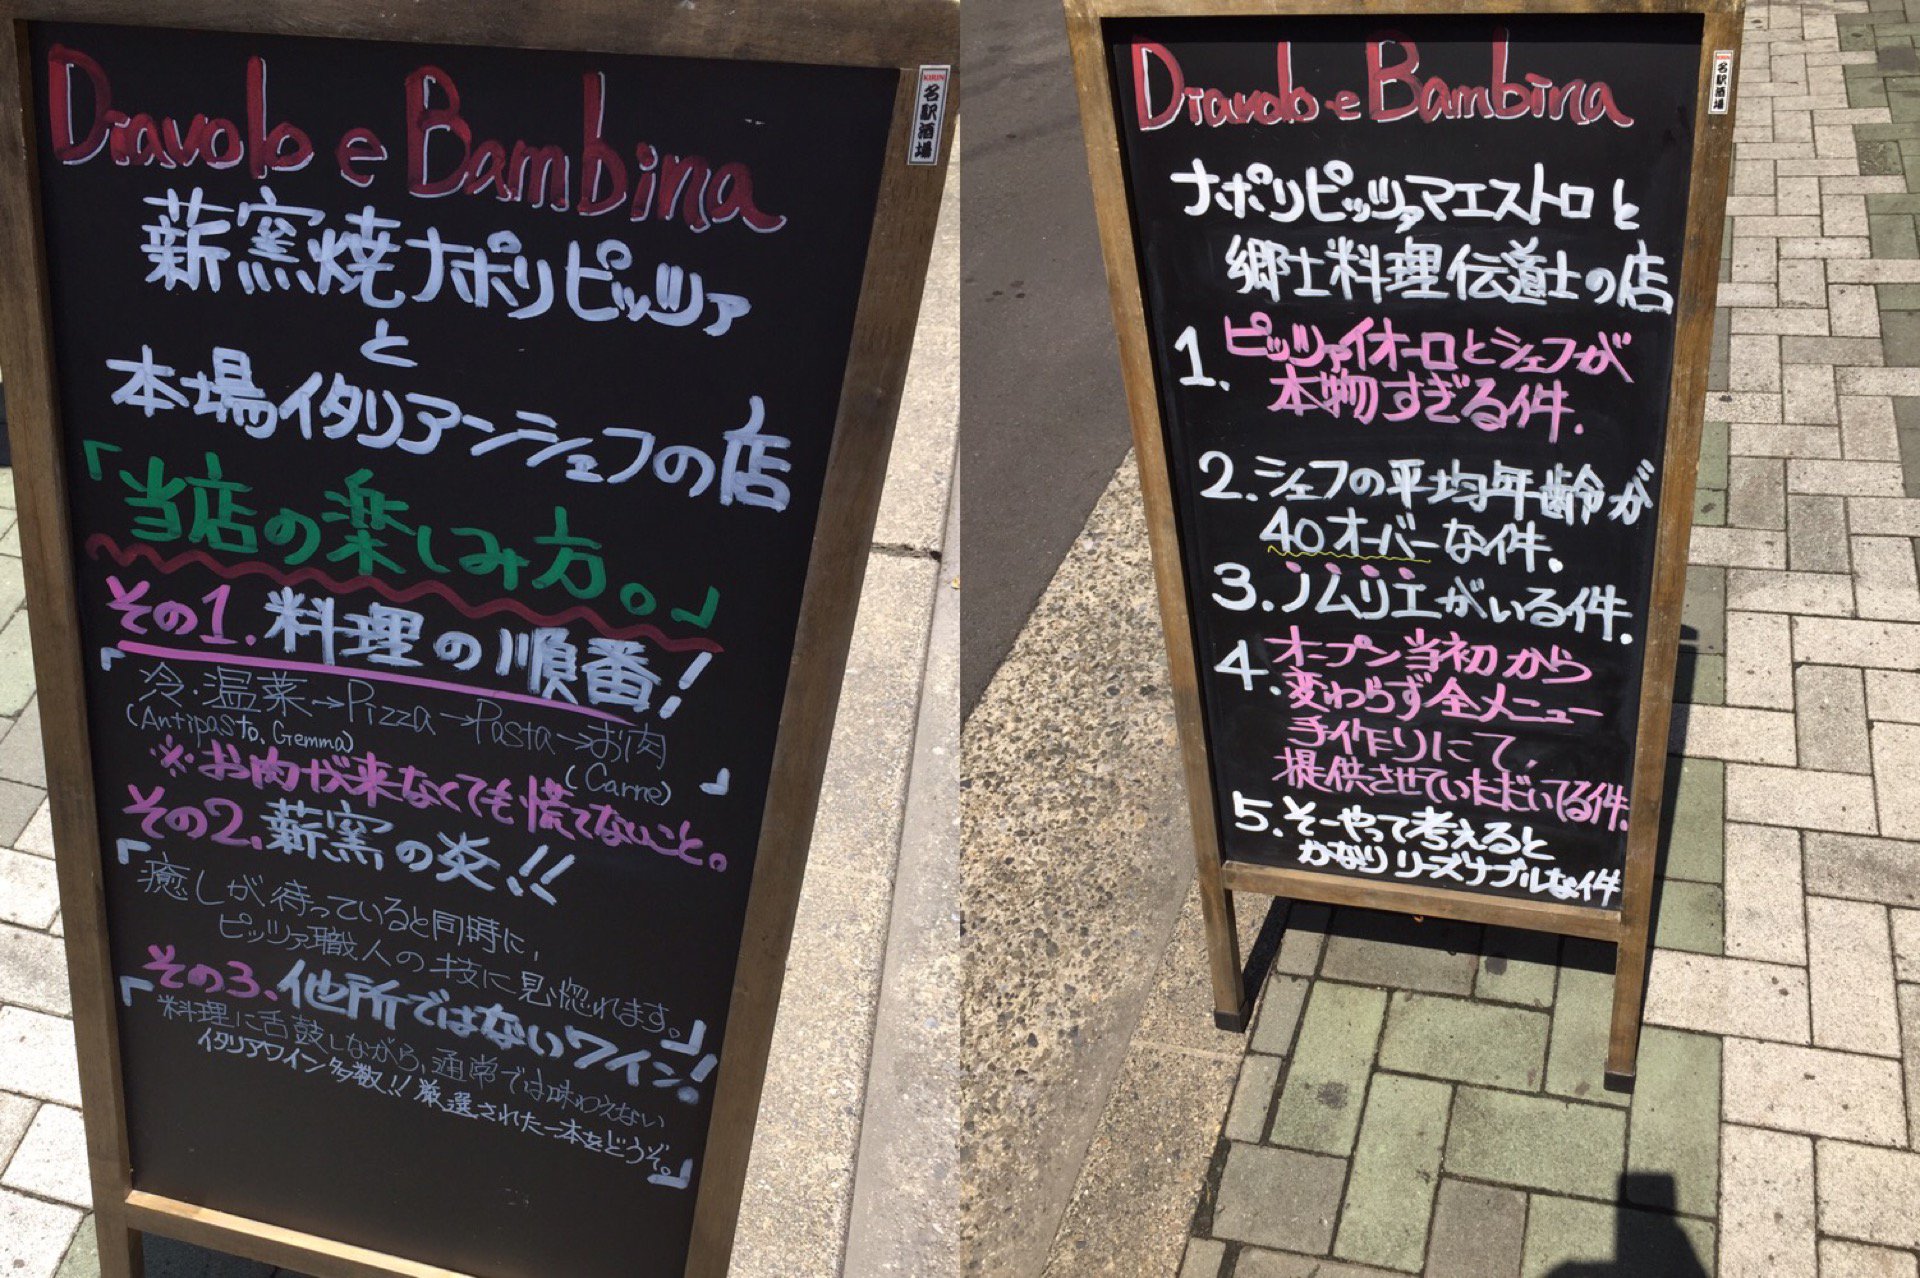 Diavolo e Bambina
KIRIN
名駅酒場
薪窯焼ナポリピッツァ
と
本場イタリアンシェフの店
「当店の楽しみ方。」
その1.料理の順番!
「冷・温菜→Pizza→Pasta→お肉
(Antipasto, Gemma)
(Carne)」
※お肉が来なくても慌てないこと。
その2.薪窯の炎!!
「癒しが待っていると同時に,
ピッツァ職人の技に見惚れます。」
その3.他所ではないワイン!
「料理に舌鼓しながら、通常では味わえない
イタリアワイン多数!!厳選された一本をどうぞ。」
Diavolo e Bambina
KIRIN
名駅酒場
ナポリピッツァマエストロと
郷土料理伝道士の店
1.ピッツァイオーロとシェフが
本物すぎる件.
2.シェフの平均年齢が
40オーバーな件.
3.ソムリエがいる件.
4.オープン当初から
変わらず全メニュー
手作りにて,
提供させていただいてる件.
5.そーやって考えると
かなりリーズナブルな件